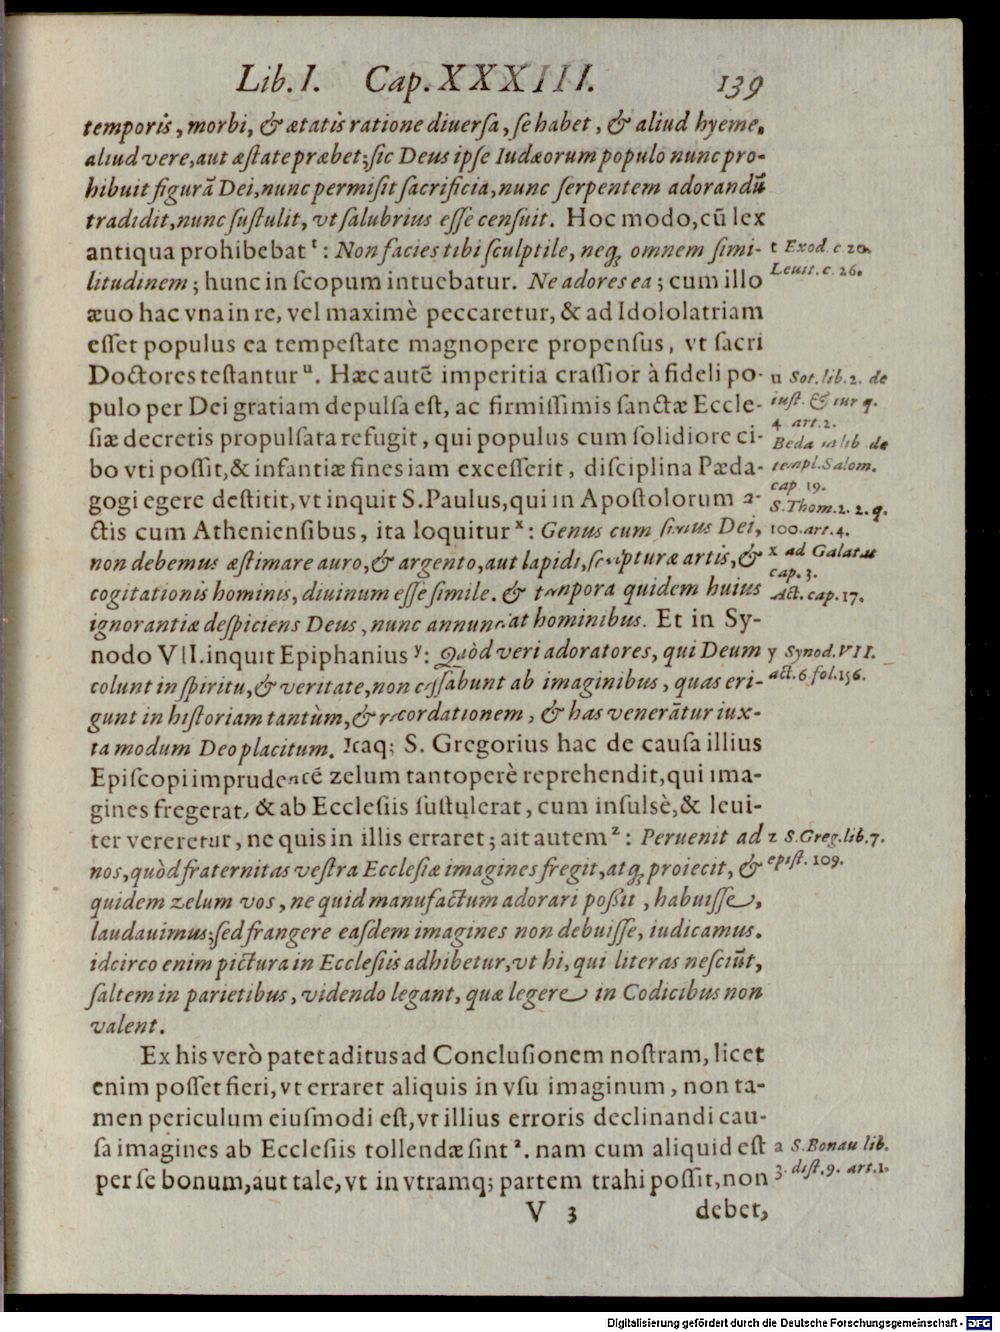 Lib. I. Cap. XXXIII. 139
temporis, morbi, & ætatis ratione diuerſa, ſe habet, & aliud hyeme,
aliud vere, aut æſtate præbet; ſic Deus ipſe Iudæorum populo nunc pro-
hibuit figurā Dei, nunc permiſit ſacrificia, nunc ſerpentem adorandū
tradidit, nunc ſuſtulit, vt ſalubrius eſſe cenſuit. Hoc modo, cū lex
antiqua prohibebat ᵗ: Non facies tibi ſculptile, neq; omnem ſimi-
litudinem; hunc in ſcopum intuebatur. Ne adores ea; cum illo
æuo hac vna in re, vel maximè peccaretur, & ad Idololatriam
eſſet populus ea tempeſtate magnopere propenſus, vt ſacri
Doctores teſtantur ᵘ. Hæc autē imperitia craſſior à fideli po-
pulo per Dei gratiam depulſa eſt, ac firmiſſimis ſanctæ Eccle-
ſiæ decretis propulſata refugit, qui populus cum ſolidiore ci-
bo vti poſſit, & infantiæ fines iam exceſſerit, diſciplina Pæda-
gogi egere deſtitit, vt inquit S. Paulus, qui in Apoſtolorum a-
ctis cum Athenienſibus, ita loquitur ˣ: Genus cum ſimus Dei,
non debemus æſtimare auro, & argento, aut lapidi, ſculpturæ artis, &
cogitationis hominis, diuinum eſſe ſimile. & tempora quidem huius
ignorantiæ deſpiciens Deus, nunc annunciat hominibus. Et in Sy-
nodo VII. inquit Epiphanius ʸ: Quòd veri adoratores, qui Deum
colunt in ſpiritu, & veritate, non ceſſabunt ab imaginibus, quas eri-
gunt in hiſtoriam tantùm, & recordationem, & has venerātur iux-
ta modum Deo placitum. Itaq; S. Gregorius hac de cauſa illius
Epiſcopi imprudentē zelum tantoperè reprehendit, qui ima-
gines fregerat, & ab Eccleſiis ſuſtulerat, cum inſulsè, & leui-
ter vereretur, ne quis in illis erraret; ait autem ᶻ: Peruenit ad
nos, quòd fraternitas veſtra Eccleſiæ imagines fregit, atq; proiecit, &
quidem zelum vos, ne quid manufactum adorari poſſit, habuiſſe,
laudauimus; ſed frangere eaſdem imagines non debuiſſe, iudicamus.
idcirco enim pictura in Eccleſiis adhibetur, vt hi, qui literas neſciūt,
ſaltem in parietibus, videndo legant, quæ legere in Codicibus non
valent.
Ex his verò patet aditus ad Concluſionem noſtram, licet
enim poſſet fieri, vt erraret aliquis in vſu imaginum, non ta-
men periculum eiuſmodi eſt, vt illius erroris declinandi cau-
ſa imagines ab Eccleſiis tollendæ ſint ᵃ. nam cum aliquid eſt
per ſe bonum, aut tale, vt in vtramq; partem trahi poſſit, non
V 3 debet,
t Exod. c. 20.
Leuit. c. 26.
u Sot. lib. 2. de
iuſt. & iur q.
4 art. 2.
Beda in lib de
templ. Salom.
cap 19.
S. Thom. 2. 2. q.
100. art. 4.
x ad Galatas
cap. 3.
Act. cap. 17.
y Synod. VII.
act. 6. fol. 156.
z S. Greg. lib. 7.
epiſt. 109.
a S. Bonau lib.
3. diſt. 9. art. 1.
Digitalisierung gefördert durch die Deutsche Forschungsgemeinschaft - DFG